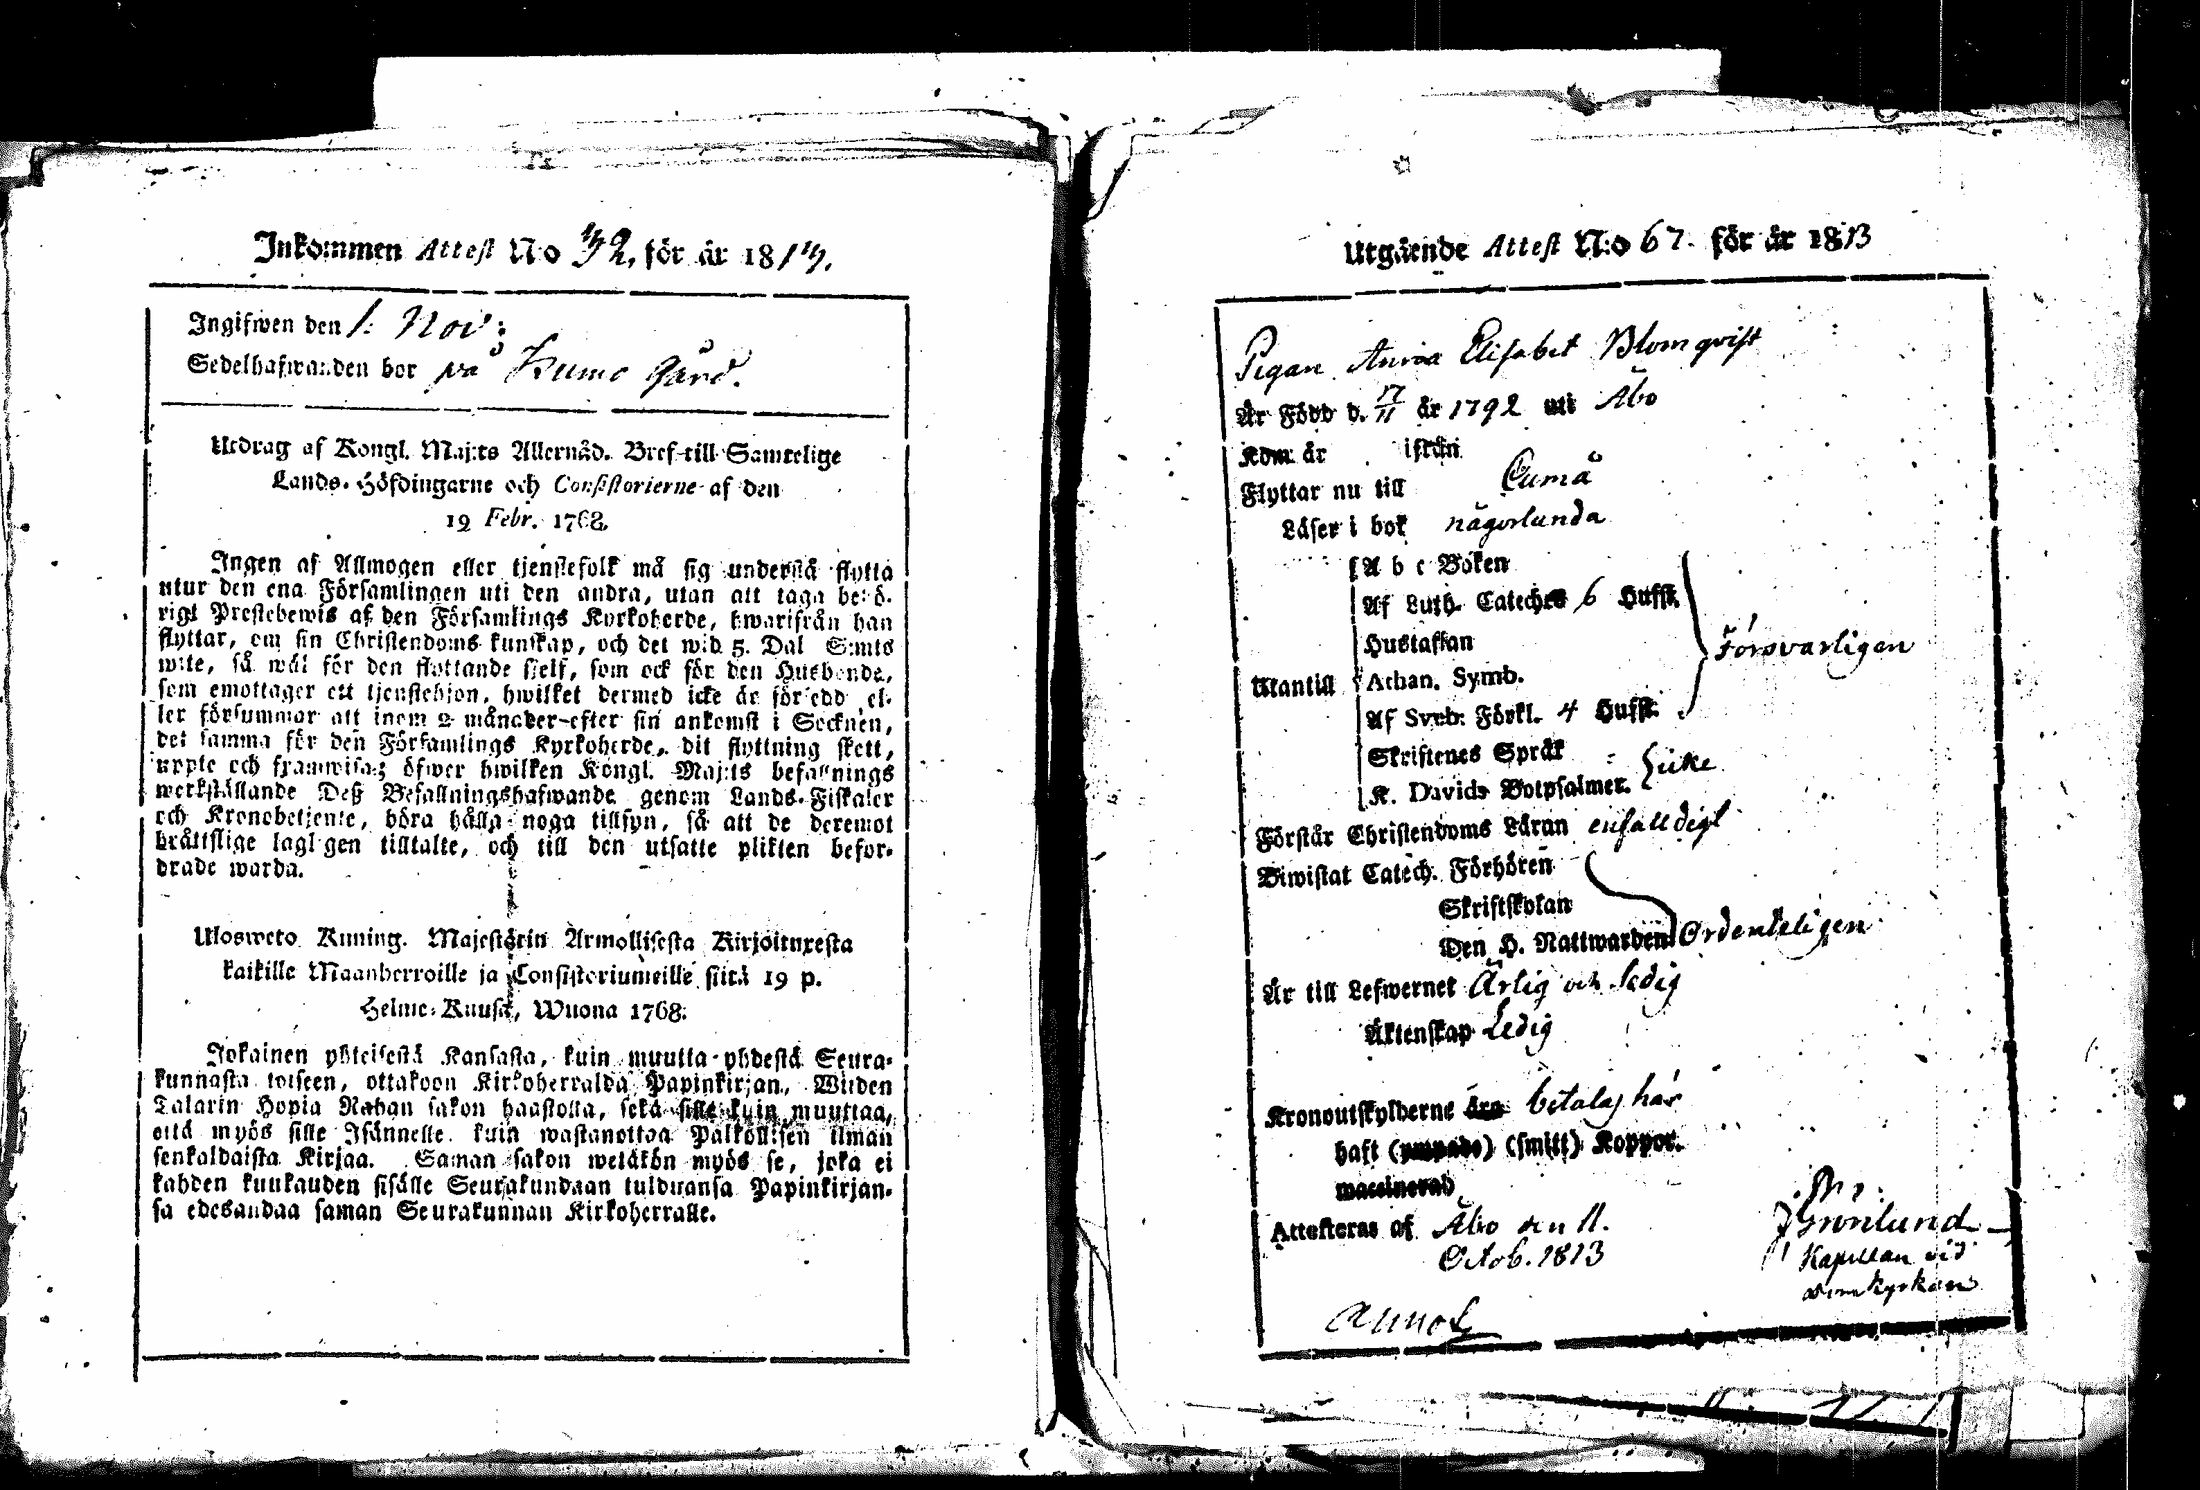 Inkommen Attest No 32, för år 1813.
Ingifwen den 1: Nov:
Sedelhafwanden bor på Kumo gård.
Utdrag af Kongl. Maj:ts Allernåd. Bref till Samtelige
Lands-Höfdingarne och Consistorierne af den
19 Febr. 1768.
Ingen af Allmogen eller tjenstefolk må sig understå flytta
utur den ena Församlingen uti den andra, utan att taga behö-
rigt Prestebewis af den Församlings Kyrkoherde, hwarifrån han
flyttar, om sin Christendoms kunskap, och det wid 5. Dal S:mts
wite, så wäl för den flyttande sjelf, som ock för den Husbonde,
som emottager ett tjenstehjon, hwilket dermed icke är försedd el-
ler försummar att inom 2 månader efter sin ankomst i Socknen,
det samma för den Församlings Kyrkoherde, dit flyttning skett,
uppte och framwisa; öfwer hwilken Kongl. Maj:ts befallnings
werkställande Deß Befallningshafwande genom Lands-Fiskaler
och Kronobetjente, böra hålla noga tillsyn, så att de deremot
bråttslige lagligen tilltalte, och till den utsatte plikten befor-
drade warda.
Ulosweto Kuning. Majestärin Armollisesta Kirjoituxesta
kaikille Maanherroille ja Consistoriumeille siitä 19 p.
Helme-Kuusa, Wuona 1768.
Jokainen yhteisestä Kansasta, kuin muutta yhdestä Seura-
kunnasta toiseen, ottakoon Kirkoherralda Papinkirjan, Wiiden
Talarin Hopia Rahan sakon haastolla, sekä sille kuin muuttaa,
että myös sille Isännelle kuin wastanottaa Palkollisen ilman
senkaldaista Kirjaa. Saman sakon wetäkön myös se, joka ei
kahden kuukauden sisälle Seurakundaan tulduansa Papinkirjan-
sa edesandaa saman Seurakunnan Kirkoherralle.
Utgående Attest N:o 67. för år 1813
Pigan Anna Elisabet Blomqvist
Är Född d. 17/11 år 1792 uti Åbo
Kom år ifrån
Flyttar nu till Cumå
Läser i bok någorlunda
A b c Boken
Af Luth. Cateches 6 Hufst.
Hustaflan
Försvarligen
Utantill Athan. Symb.
Af Sveb. Förkl. 4 Hufst.
Skriftenes Språk
K. Davids Botpsalmer.
Förstår Christendoms Läran enfalldigt
Biwistat Catech. Förhören
Skriftskolan
Den H. Nattwarden Ordenteligen
Är till Lefwernet Ärlig och sedig
Äktenskap Ledig
Kronoutskylderne äro betalas här
haft (ympade) (smitt) Koppor.
waccinerad
Attesteras af Åbo den 11.
Octob. 1813
J Grönlund
Kapellan vid
domkyrkan